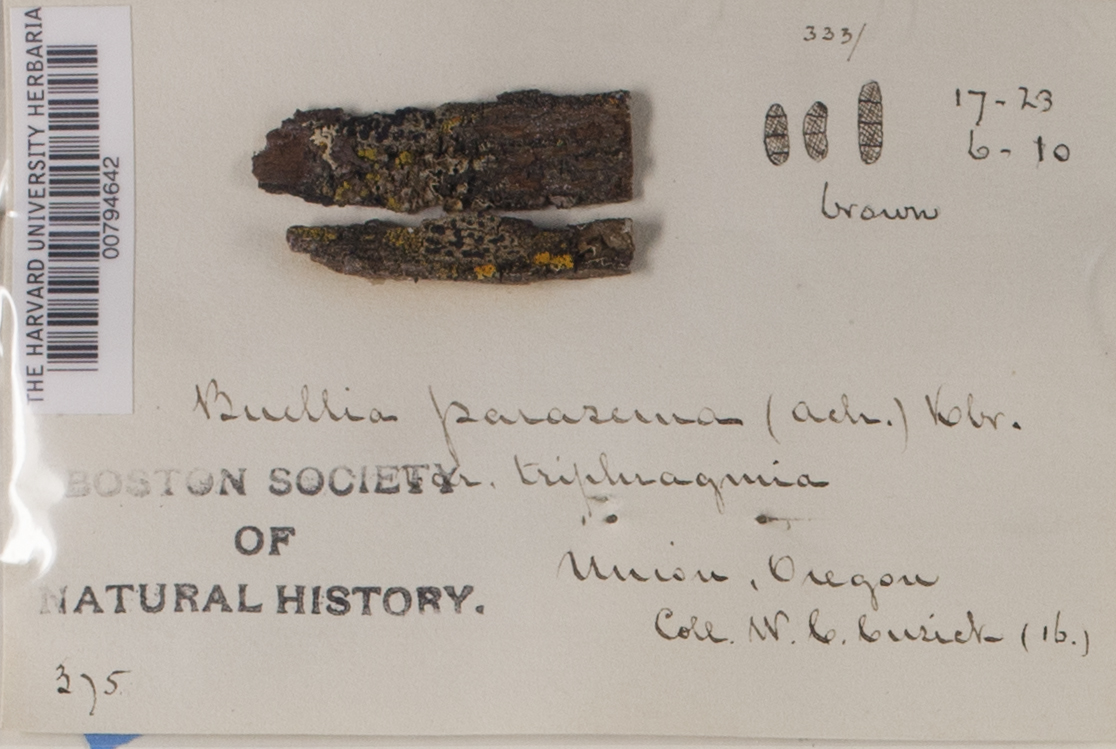 THE HARVARD UNIVERSITY HERBARIA
00794642
333/
17-23
6-10
brown
Buellia parasema (Ach.) Kbr.
var. triphragmia
BOSTON SOCIETY
OF
NATURAL HISTORY.
Union, Oregon
Coll. W. C. Cusick (16.)
375